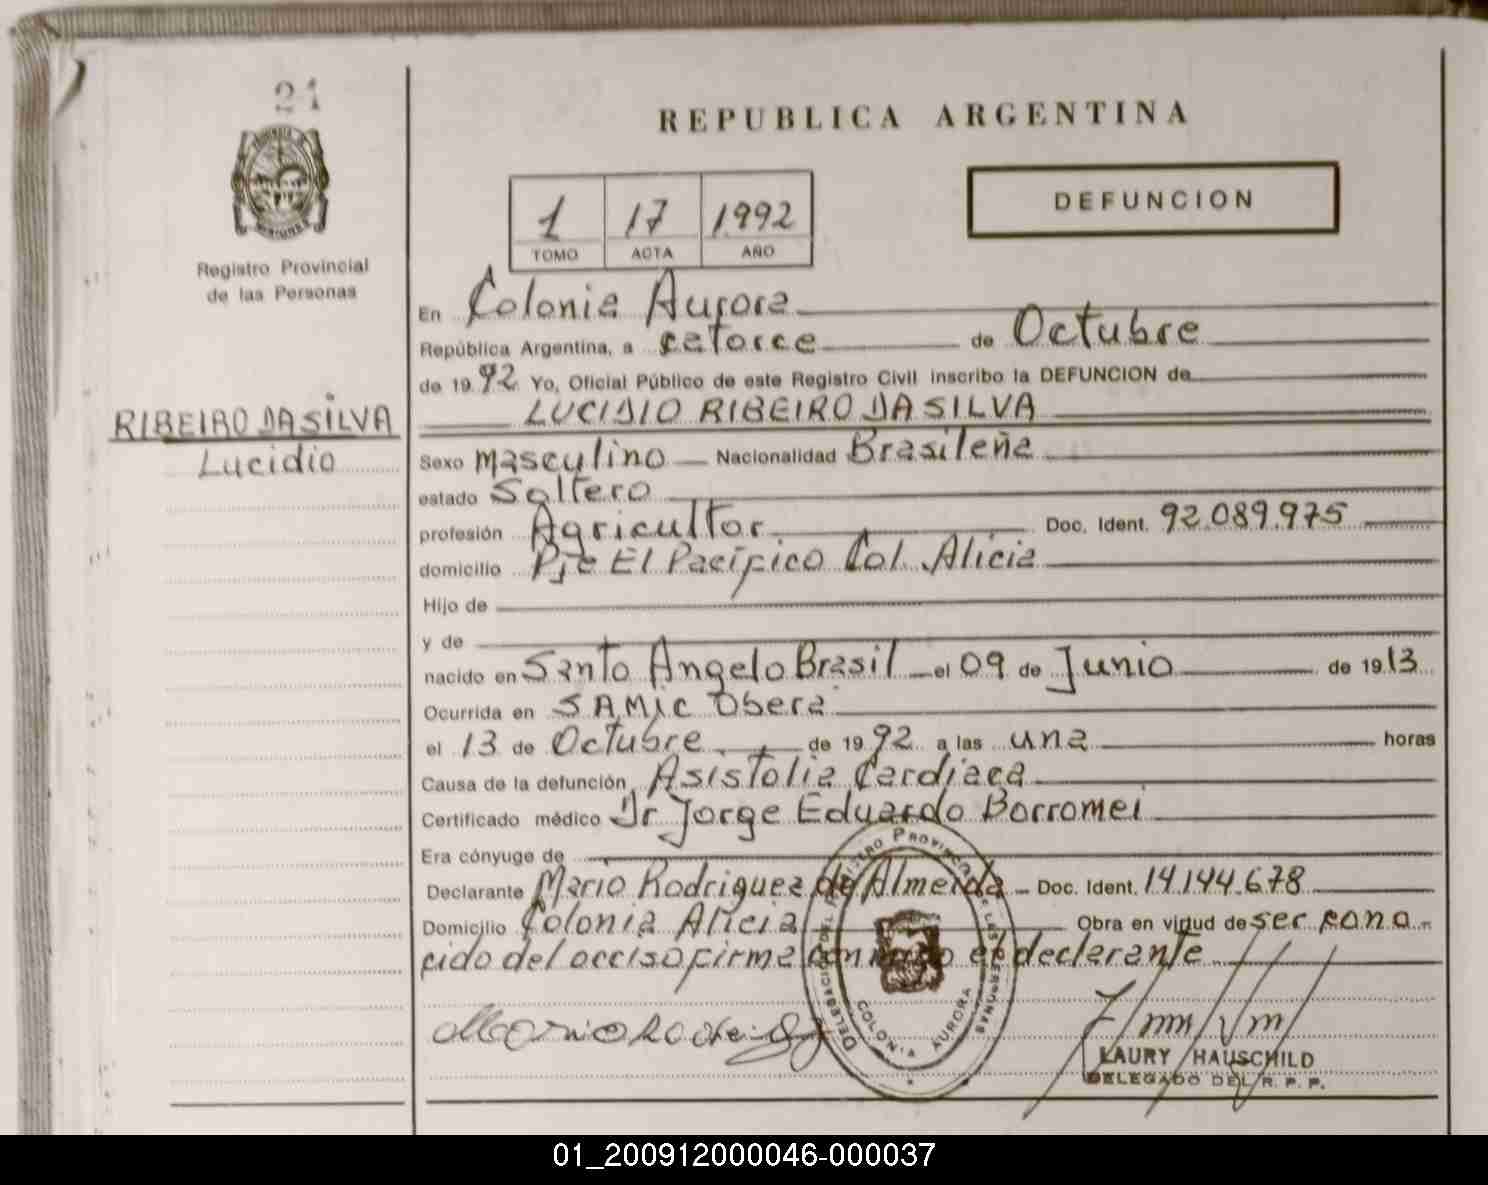 21
REPUBLICA ARGENTINA
DEFUNCION
1 17 1992
TOMO ACTA AÑO
Registro Provincial
de las Personas
RIBEIRO DA SILVA
Lucidio
En Colonia Aurora
República Argentina, a catorce de Octubre
de 1992 Yo, Oficial Público de este Registro Civil inscribo la DEFUNCION de
LUCIDIO RIBEIRO DA SILVA
Sexo Masculino Nacionalidad Brasileña
estado Soltero
profesión Agricultor Doc. Ident. 92.089.975
domicilio Pje El Pacífico Col. Alicia
Hijo de
y de
nacido en Santo Angelo Brasil el 09 de Junio de 1913
Ocurrida en SAMIC Obera
el 13 de Octubre de 1992 a las una horas
Causa de la defunción Asistolia Cardiaca
Certificado médico Dr Jorge Eduardo Borromei
Era cónyuge de
Declarante Mario Rodriguez de Almeida Doc. Ident. 14.144.678
Domicilio Colonia Alicia Obra en virtud de ser cono-
cido del occiso firma conmigo el declarante
DELEGACION DEL REGISTRO PROVINCIAL DE LAS PERSONAS
COLONIA AURORA
LAURY HAUSCHILD
DELEGADO DEL R. P. P.
01_200912000046-000037